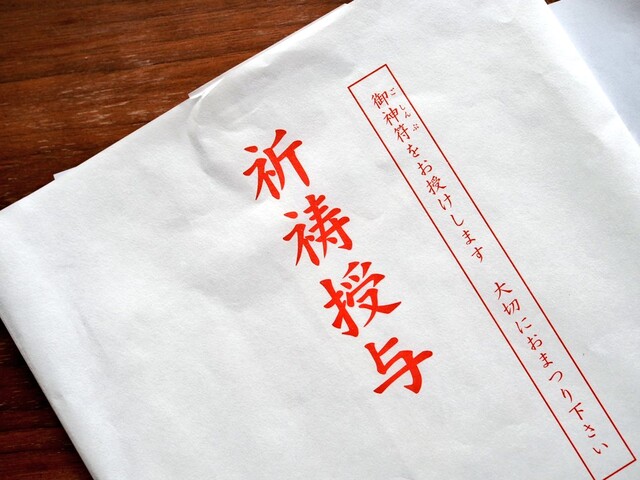 御神符をお授けします　大切におまつり下さい
ごしんぷ
祈祷授与